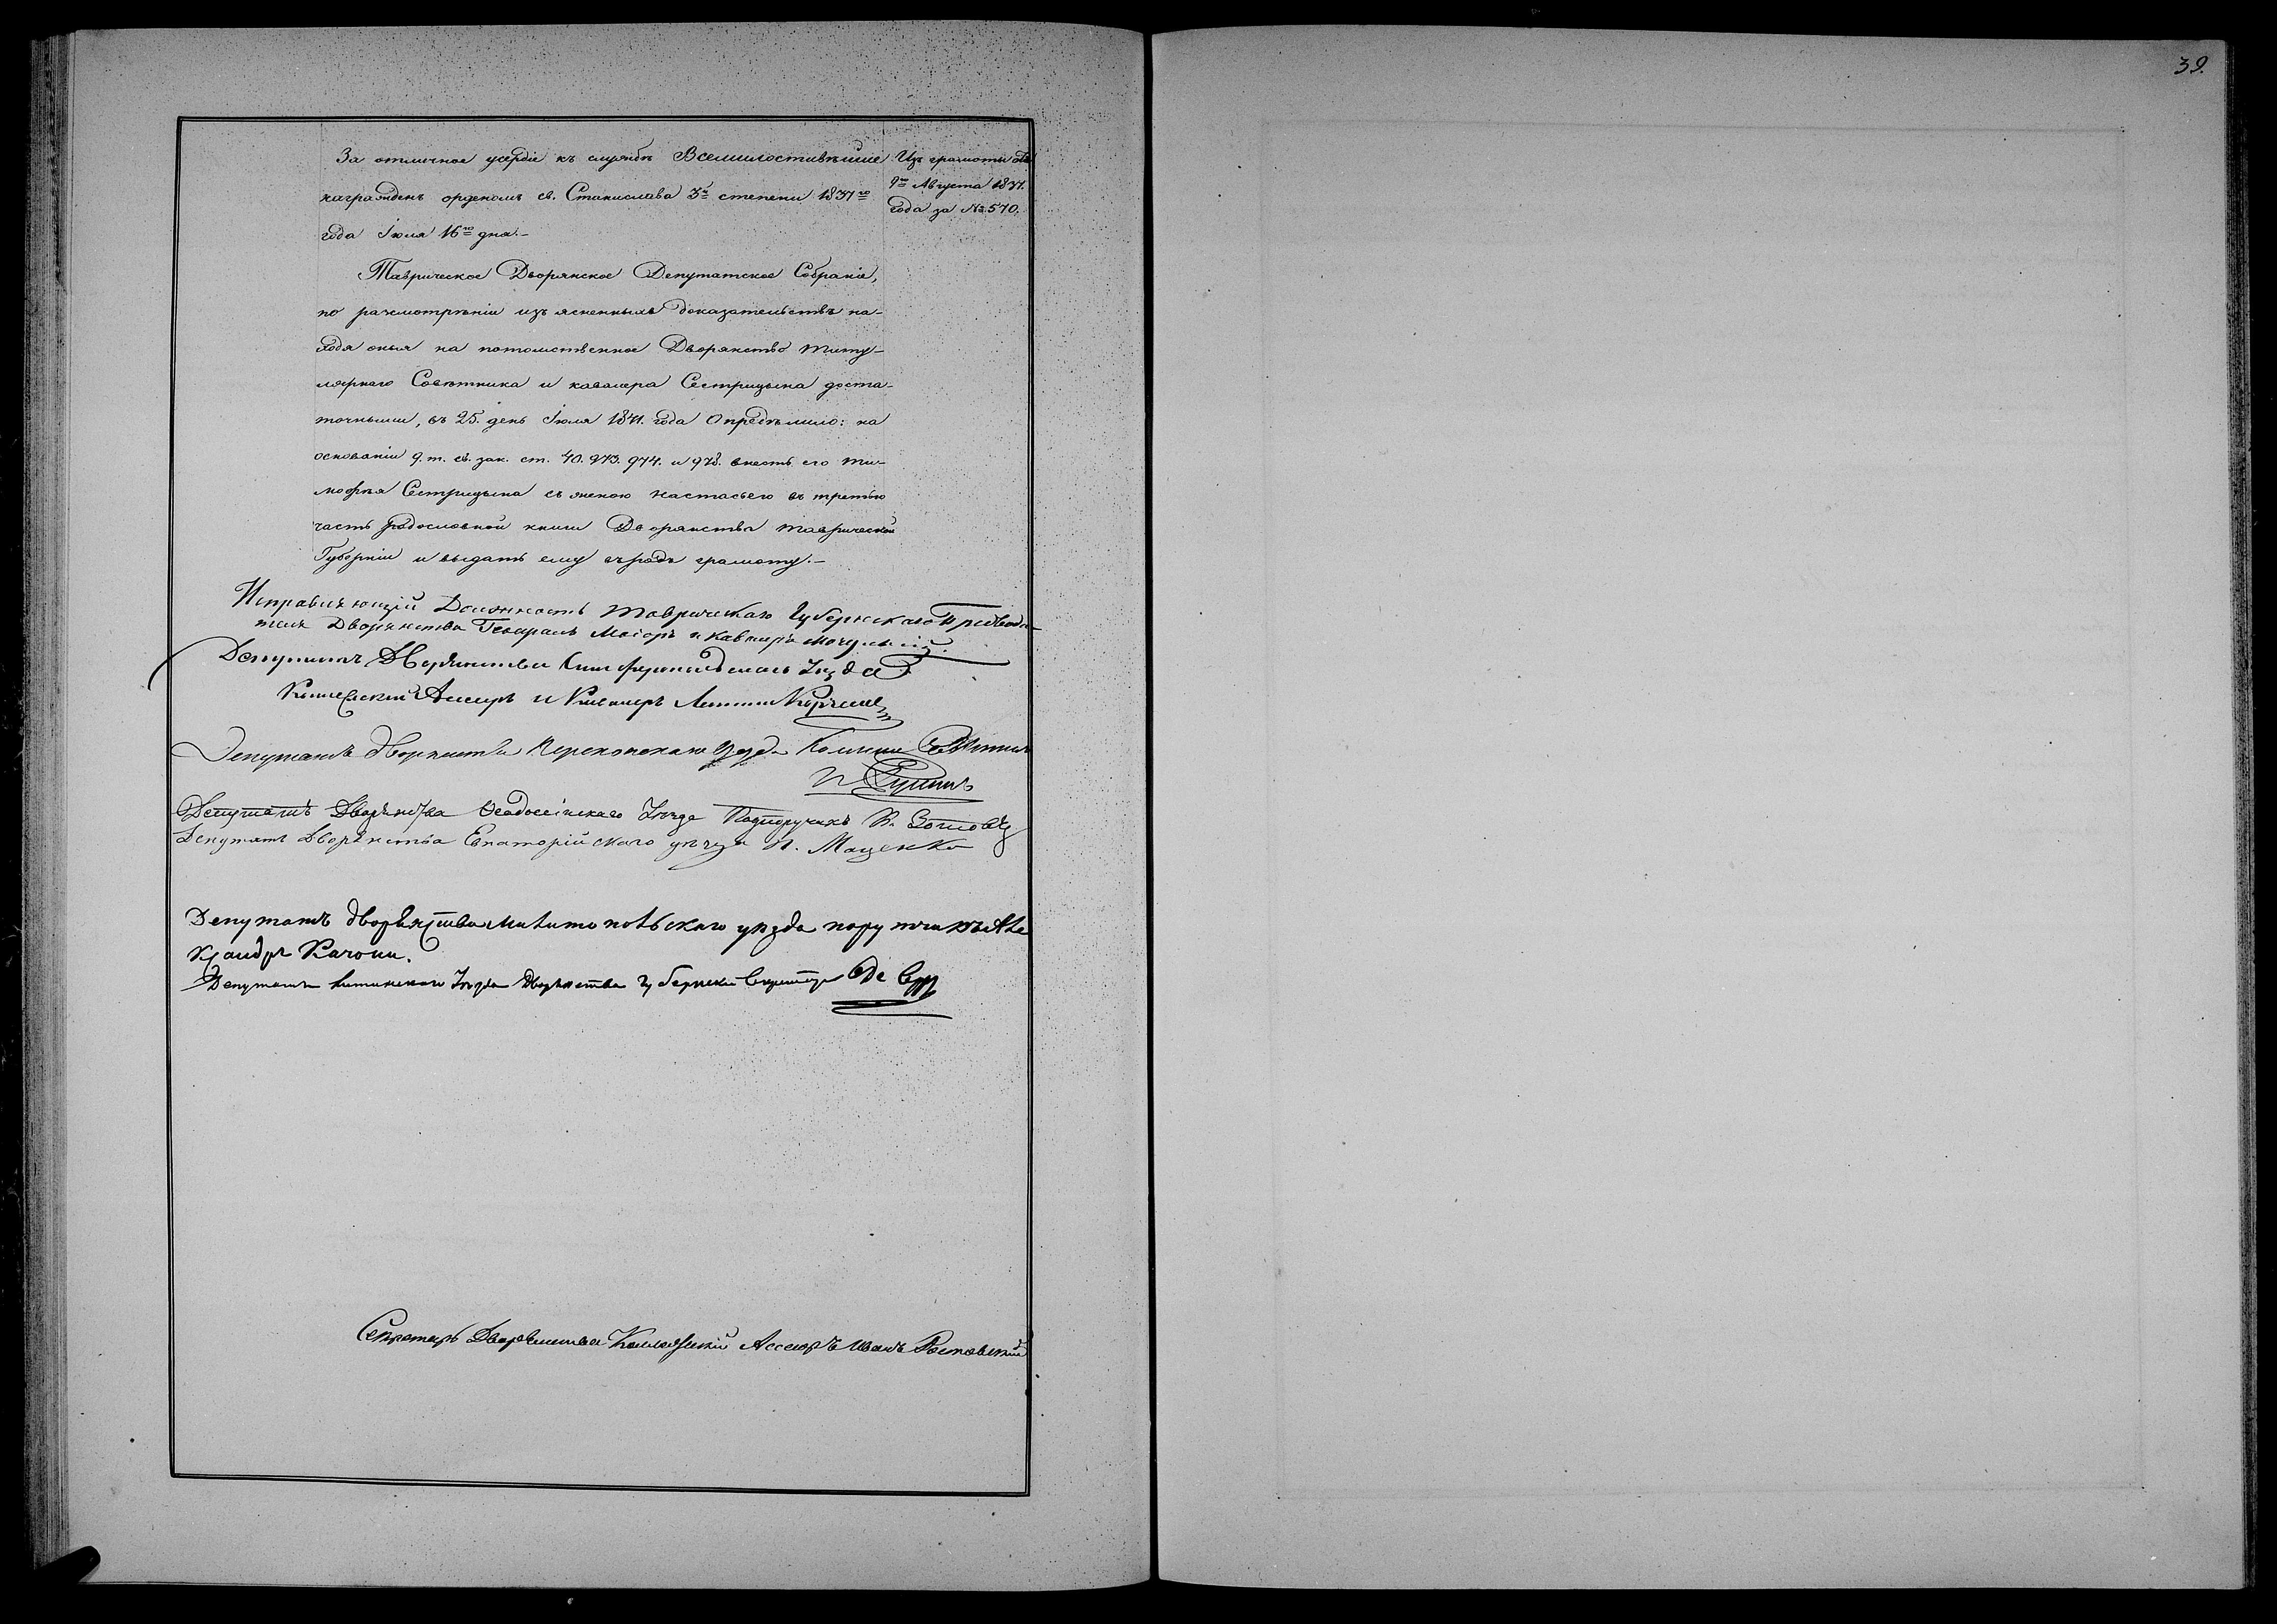 39.
За отличное усердіе къ службѣ Всемилостивѣйше
награжденъ орденомъ св. Станислава 3й степени 1837го
года Іюля 16го дня.–
Изъ грамоты отъ
9го Августа 1837.
года за № 570.
Таврическое Дворянское Депутатское Собраніе,
по разсмотрѣніи изъясненныхъ доказательствъ на-
ходя оныя на потомственное Дворянство Титу-
лярнаго Совѣтника и кавалера Сестрицына доста-
точными, въ 25. день Іюля 1841. года Опредѣлило: на
основаніи 9. т. св. зак. ст. 40. 973. 974. и 978. внесть его Ти-
мофѣя Сестрицына съ женою Настасьею въ третью
часть родословной книги Дворянства Таврической
Губерніи и выдать ему грамоту.–
Исправляющій Должность Таврическаго Губернскаго Предводи-
теля Дворянства Генералъ Маіоръ и Кавалеръ
Депутатъ Дворянства Симферопольскаго Уѣзда
Ассесоръ и Кавалеръ
Депутатъ дворянства Перекопскаго Уѣзда
Депутатъ Дворянства Ѳеодосійскаго Уѣзда Подпоручикъ
Депутатъ Дворянства Евпаторійскаго уѣзда П. Маценко
Депутатъ дворянства Мелитопольскаго уѣзда поручикъ Але
ксандръ Качони.
Депутатъ Уѣзда Дворянства Губернскій Секретарь
Секретарь Дворянства Коллежскій Ассесоръ Иванъ